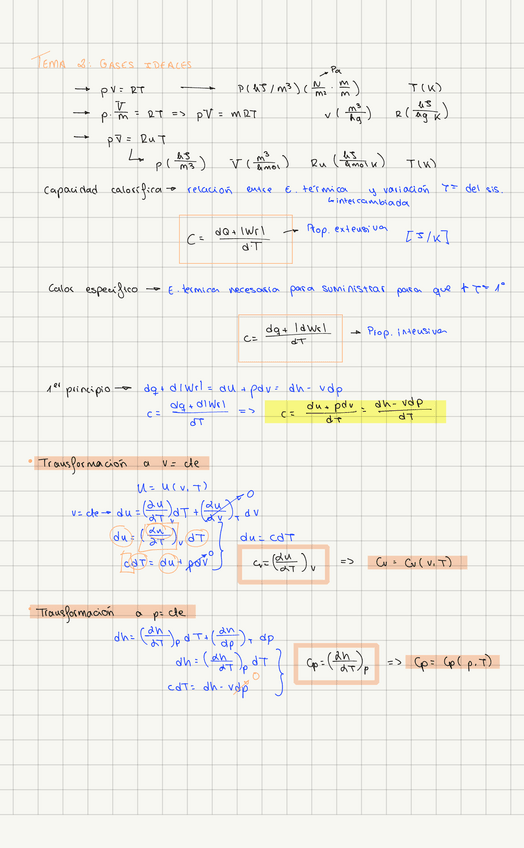 TEMA 2: GASES IDEALES
Pa
→ pv = RT → P (kJ/m³) (N/m² · m/m) T (K)
→ p · V/m = RT => pV = mRT v (m³/kg) R (kJ/kg K)
→ pv̄ = Ru T
p (kJ/m³) V̄ (m³/kmol) Ru (kJ/kmol K) T (K)
Capacidad calorífica → relación entre E. térmica y variación Tª del sis.
↳ intercambiada
C = (dQ + |Wr|)/dT → Prop. extensiva [J/K]
Calor específico → E. térmica necesaria para suministrar para que ↑ Tª 1º
c = (dq + |dWr|)/dT → Prop. intensiva
1er principio → dq + d|Wr| = du + pdv = dh - vdp
c = (dq + d|Wr|)/dT => c = (du + pdv)/dT = (dh - vdp)/dT
• Transformación a v = cte
U = U (v, T)
v = cte → du = (∂u/∂T)v dT + (∂u/∂v)T dv 0
du = (∂u/∂T)v dT du = cdT
cdT = du + pdv 0 cv = (∂u/∂T)v => Cv = Cv (v, T)
• Transformación a p = cte
dh = (∂h/∂T)p dT + (∂h/∂p)T dp
dh = (∂h/∂T)p dT Cp = (∂h/∂T)p => Cp = Cp (p, T)
cdT = dh - vdp 0